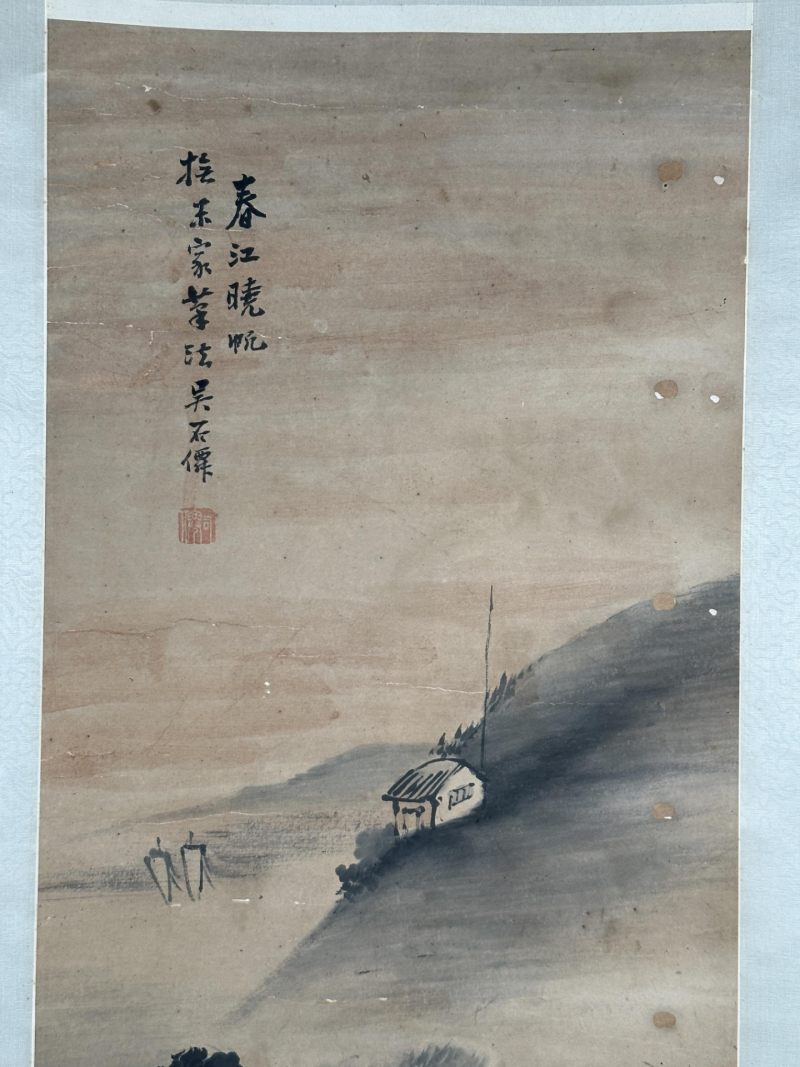 春江曉帆
橅米家筆法吳石僊